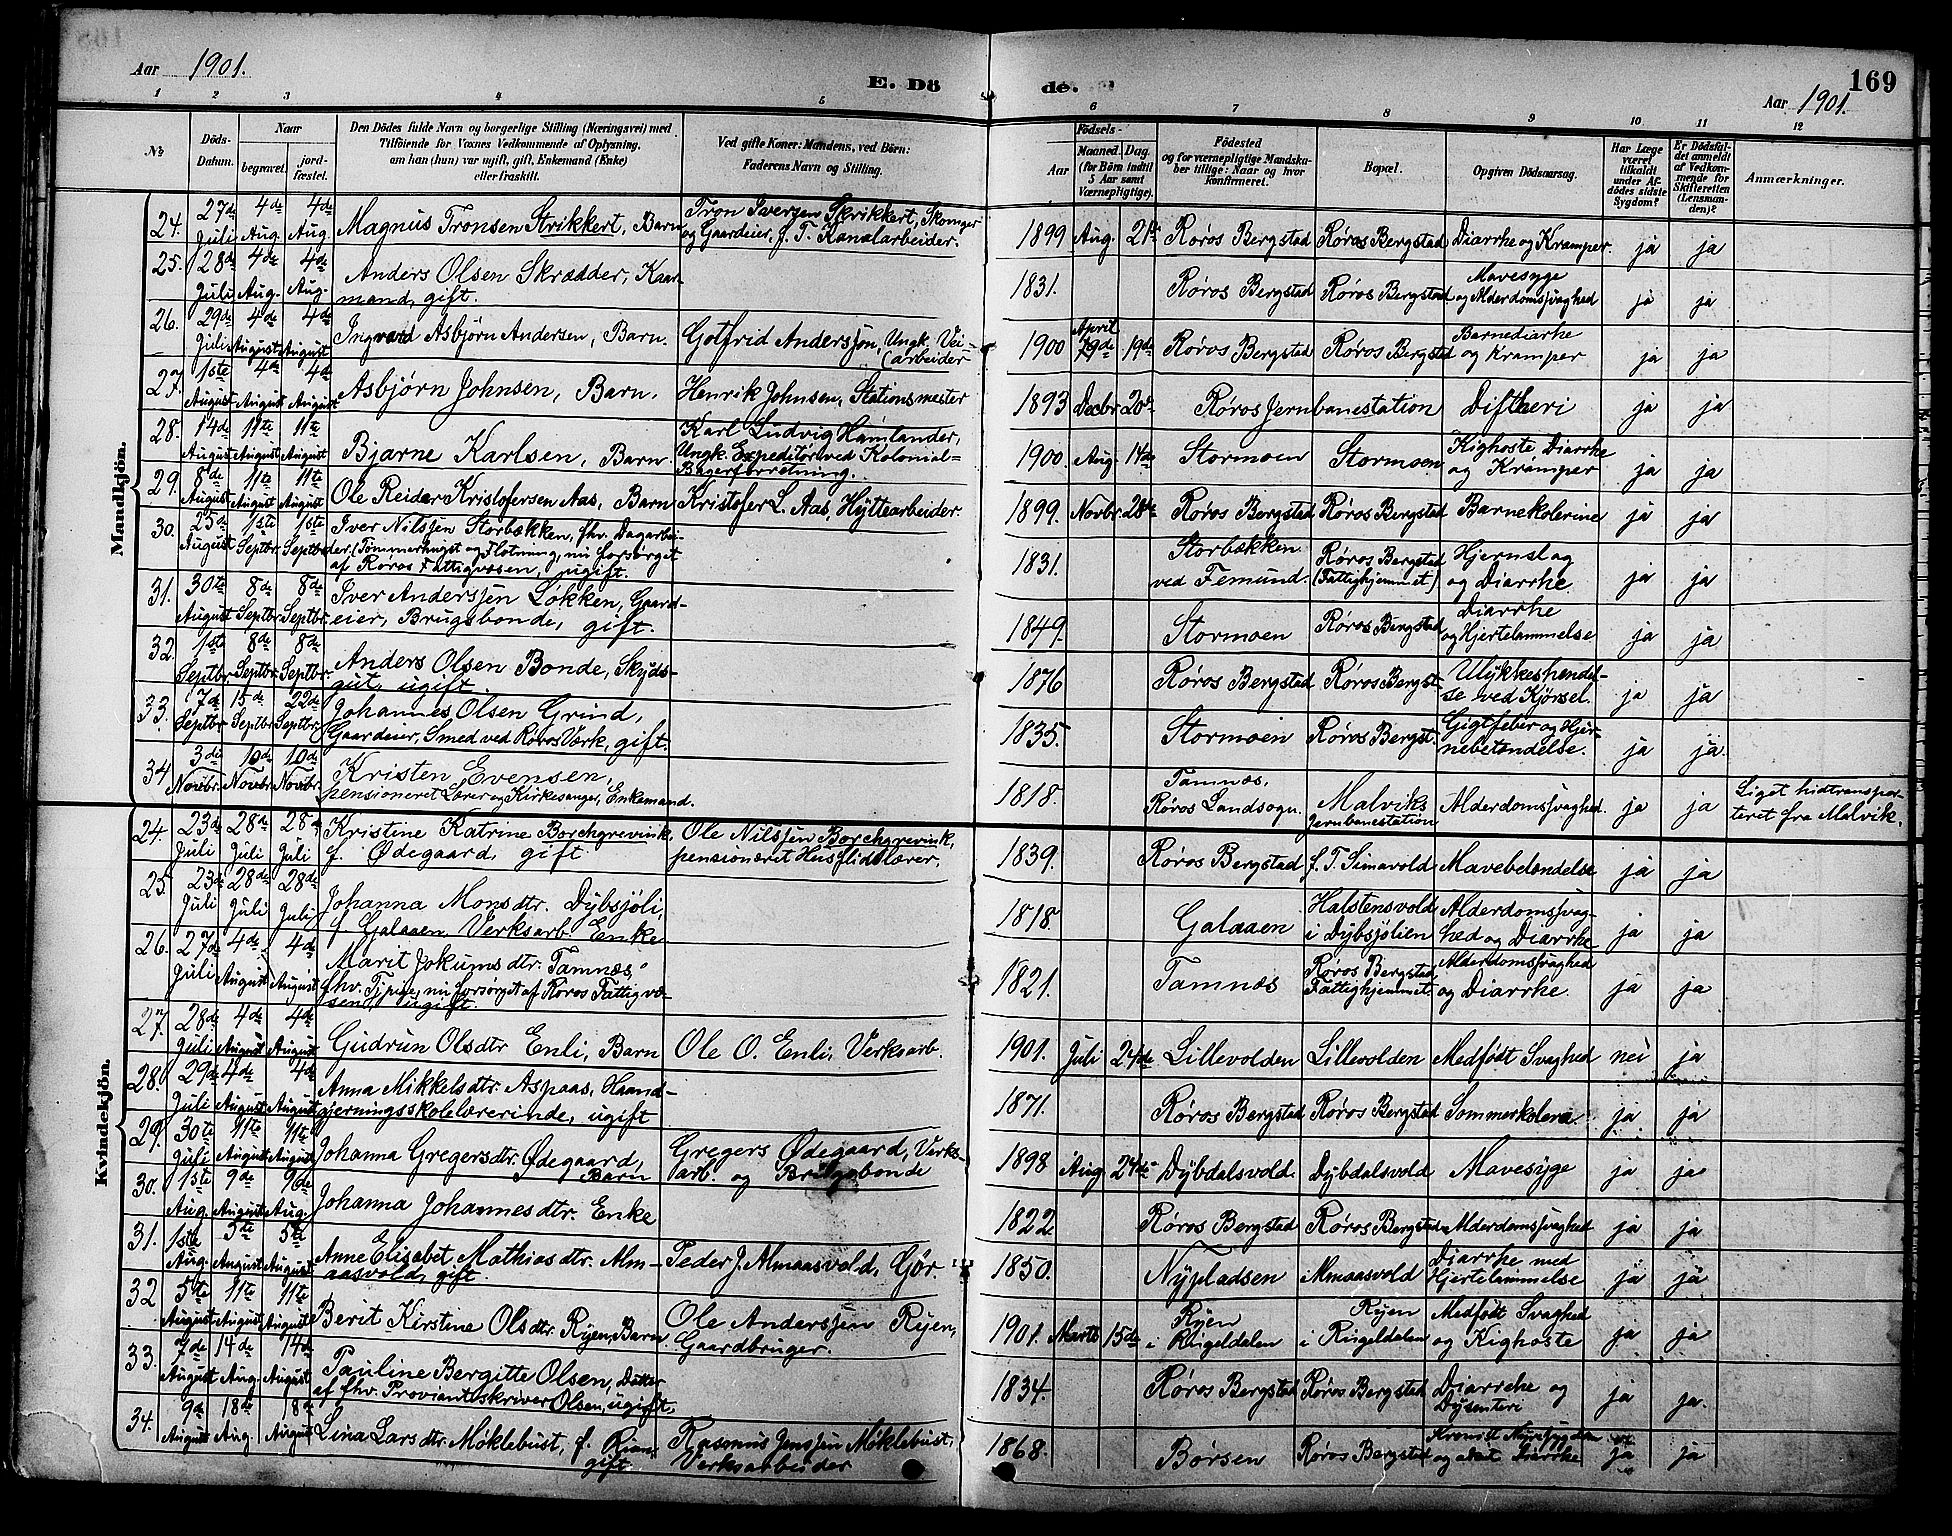 Aar 1901.
E. Dö
de.
169
Aar 1901.
1 2 3 4 5 6 7 8 9 10 11 12
No
Döds-Datum.
Naar
begravet.
jord-fæstet.
Den Dödes fulde Navn og borgerlige Stilling (Næringsvei) med
Tilföiende for Voxnes Vedkommende af Oplysning,
om han (hun) var ugift, gift, Enkemand (Enke)
eller fraskilt.
Ved gifte Koner: Mandens, ved Börn:
Faderens Navn og Stilling.
Födsels-
Aar
Maaned. Dag.
(for Börn indtil
5 Aar samt
Værnepligtige).
Födested
og for værnepligtige Mandska-
ber tillige: Naar og hvor
konfirmeret.
Bopæl.
Opgiven Dödsaarsag.
Har Læge
været
tilkaldt
under Af-
dödes sidste
Sygdom?
Er Dödsfal-
det anmeldt
af Vedkom-
mende for
Skifteretten
(Lensman-
den)?
Anmærkninger.
Mandkjön.
24. 27de Juli 4de Aug. 4de Aug Magnus Tronsen Strikkert, Barn Tron Iversen Skrikkert, Skomager og Gaardeier, f. T. Kanalarbeider. 1899 Aug. 21de Røros Bergstad Røros Bergstad Diarrhe og Kramper. ja ja
25. 28de Juli 4de Aug. 4de Aug. Anders Olsen Skrædder, Kaarmand, gift. 1831. Røros Bergstad Røros Bergstad Mavesyge og Alderdomssvaghed ja ja
26. 29de Juli 4de August 4de August Ingvard Asbjörn Andersen, Barn. Gotfrid Anderssön, Ungk. Vei-(arbeider 1900 April 19de Røros Bergstad Røros Bergstad Barnediarhe og Kramper ja ja
27. 1ste August 4de August 4de August Asbjörn Johnsen, Barn. Henrik Johnsen, Stationsmester 1893 Decbr 20de Röros Jernbanestation Diftheri ja ja
28. 14de August 11te August 11te August Bjarne Karlsen, Barn Karl Ludvig Hamlander, Ungk. Expeditör ved Kolonial-Bagerforretning. 1900 Aug. 14de Stormoen Stormoen Kighoste, Diarrhe og Kramper ja ja
29. 8de August 11te August 11te August Ole Reidar Kristofersen Aas, Barn Kristofer L. Aas, Hytte­arbeider. 1899. Novbr. 28de Røros Bergstad Røros Bergstad Barnekolerine ja ja
30. 25de August 1ste Septbr 1ste Septbr Iver Nilssen Storbækken, fhv. Dagarbeider (Tömmerhugst og Flötning, nu forsörget af Røros Fattigvæsen, ugift. 1831. Storbækken ved Femund. Røros Bergstad (Fattighjemmet) Hjerneslag og Diarrhe. ja ja
31. 30te August 8de Septbr. 8de Septbr. Iver Anderssen Løkken, Gaardeier, Brugsbonde, gift. 1849. Stormoen Røros Bergstad Diarrhe og Hjertelammelse ja ja
32. 1ste Septbr. 8de Septbr 8de Septbr. Anders Olsen Bonde, Skydsgut, ugift. 1876 Røros Bergstad Røros Bergst. Ulykkeshendelse ved Kjørsel. ja ja
33. 7de Septbr 15de Septbr 22de Septbr. Johannes Olsen Grind, Gaardeier, Smed ved Røros Værk, gift. 1835. Stormoen Røros Bergst. Gigtfeber og Hjernebetændelse. ja ja.
34 3die Novbr. 10de Novbr 10de Novbr. Kristen Evensen, pensioneret Lærer og Kirkesanger, Enkemand. 1818. Tamnæs, Røros Landsogn. Malviks Jernbanestation Alderdomssvaghed. ja ja Liget hidtransporteret fra Malvik.
Kvindekjön.
24. 23de Juli 28de Juli 28de Juli Kristine Katrine Borchgrevink, f. Ødegaard, gift Ole Nilssen Borchgrevink, pensioneret Husflidslærer. 1839. Røros Bergstad f. T. Simavold Mavebetændelse ja ja
25. 23de Juli 28de Juli 28de Juli Johanna Monsdtr. Dybsjöli, f. Galaaen, Verksarb. Enke 1818. Galaaen Halstensvold i Dybsjölien Alderdomssvaghed og Diarrhe ja ja
26. 27de Juli 4de August 4de August Marit Jokumsdtr. Tamnæs, fhv. Tjener, nu forsörget af Röros Fattigvæsen, ugift 1821. Tamnæs Røros Bergstad Fattighjemmet. Alderdomssvaghed og Diarrhe. ja ja
27. 28de Juli 4de August 4de August Gudrun Olsdtr Enli, Barn Ole O. Enli, Verksarb. 1901. Juli 24de Lillevolden Lillevolden Medfödt Svaghed nei ja
28. 29de Juli 4de August 4de August Anna Mikkelsdtr. Aspaas, Haandgjerningsskolelærerinde, ugift 1871. Røros Bergstad Røros Bergstad Sommerkolera. ja ja
29. 30te Juli 11te August 11te August Johanna Gregersdtr. Ødegaard, Barn Gregers Ødegaard, Verksarb. og Brugsbonde 1898 Aug 24de Dybdalsvold Dybdalsvold Mavesyge ja ja
30. 1ste Aug. 9de August 9de Aug. Johanna Johannesdtr. Enke 1822. Røros Bergstad Røros Bergstad Alderdomssvaghed ja ja
31. 1ste Aug. 5te August 5te August Anne Elisabet Mathiasdtr. Almaasvold, gift. Peder J. Almaasvold, Gjør. 1850. Nypladsen Almaasvold Diarrhe med Hjertelammelse ja ja
32 5te August 11te August 11te August Berit Kirstine Olsdtr. Ryen, Barn Ole Anderssen Ryen, Gaardbruger. 1901. Marts 15de Ryen i Rugeldalen Ryen i Rugeldalen Medfödt Svaghed og Kighoste ja ja
33. 7de August 14de Aug. 14de August Pauline Bergitte Olsen, Datter af fhv. Proviantskriver Olsen, ugift. 1834. Røros Bergstad Røros Bergstad Diarrhe og Dysenteri ja ja.
34. 9de August 18de Aug. 18de August Lina Larsdtr. Møklebust, f. gift Rasmus Jenssen Møklebust, Verksarbeider 1868. Børsen Røros Bergstad Kronisk og akut Diarrhe ja ja